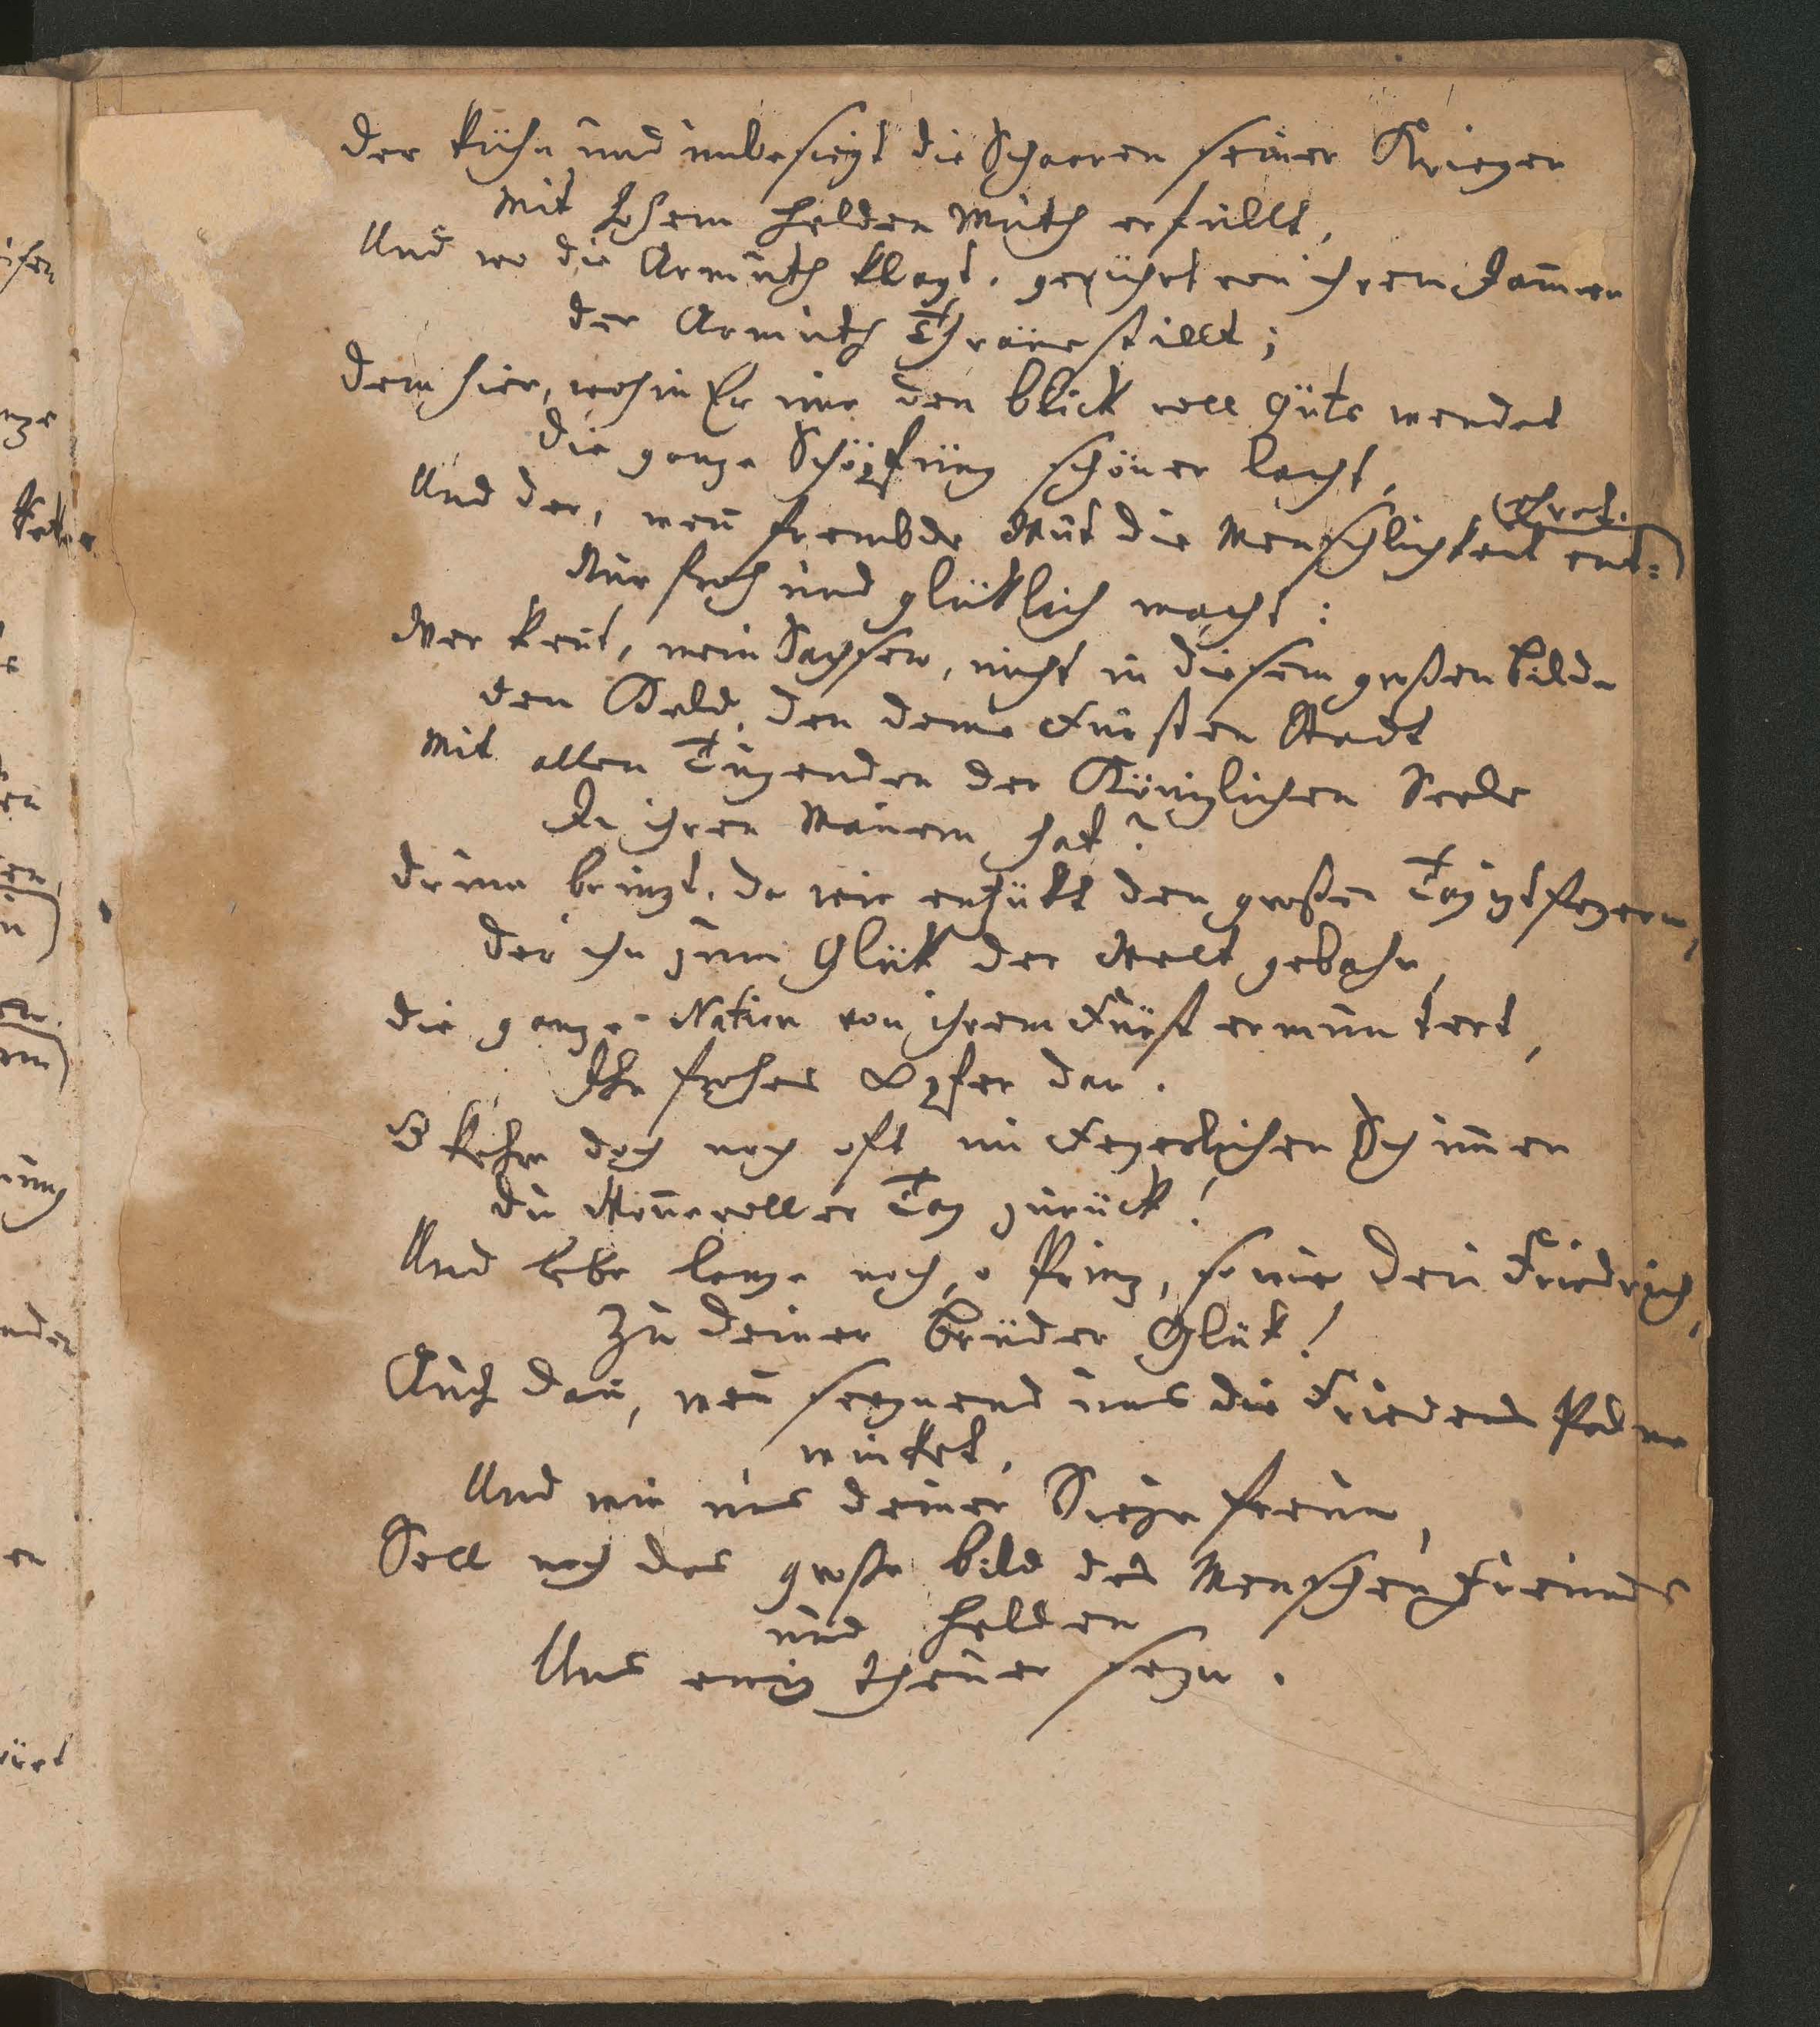 der kühn und unbesiegt die Schaaren seiner Krieger
Mit hohem Helden Muth erfüllt,
Und wo die Armuth klagt, gerührt von ihrem Jam̄er
der Armuth Thräne stillt;
dem hier, wohin Er nur den blick voll Güte wendet
die ganze Schöpfung schöner lacht,
ehret.
Und der, wen̄ frembde Wut die Menschlichkeit ent=
Nur froh und glüklich macht:
Wer ken̄t, mein Sachsen, nicht in diesem großen bilde
den Held, den deine Fürsten Stadt
Mit allen Tugenden der Königlichen Seele
In ihren Mauern hat?
drum bringt, da wir entzükt den großen Tag izt feyern,
der ihn zum Glük der Welt gebahr,
die ganze Nation von ihrem Fürst ermuntert,
Ihr frohes Opfer dar.
O kehre doch noch oft im Feyerlichen Schim̄er
du Won̄evoller Tag zurück!
Und lebe lange noch, o Prinz, so wie dein Friedrich,
Zu deiner brüder Glük!
Auch dan̄, wen̄ seegnend uns die Friedens Palme
winket,
Und wir uns deiner Siege freun,
Soll noch das große bild des Menschen Freundes
und Helden
Uns ewig theuer seyn.